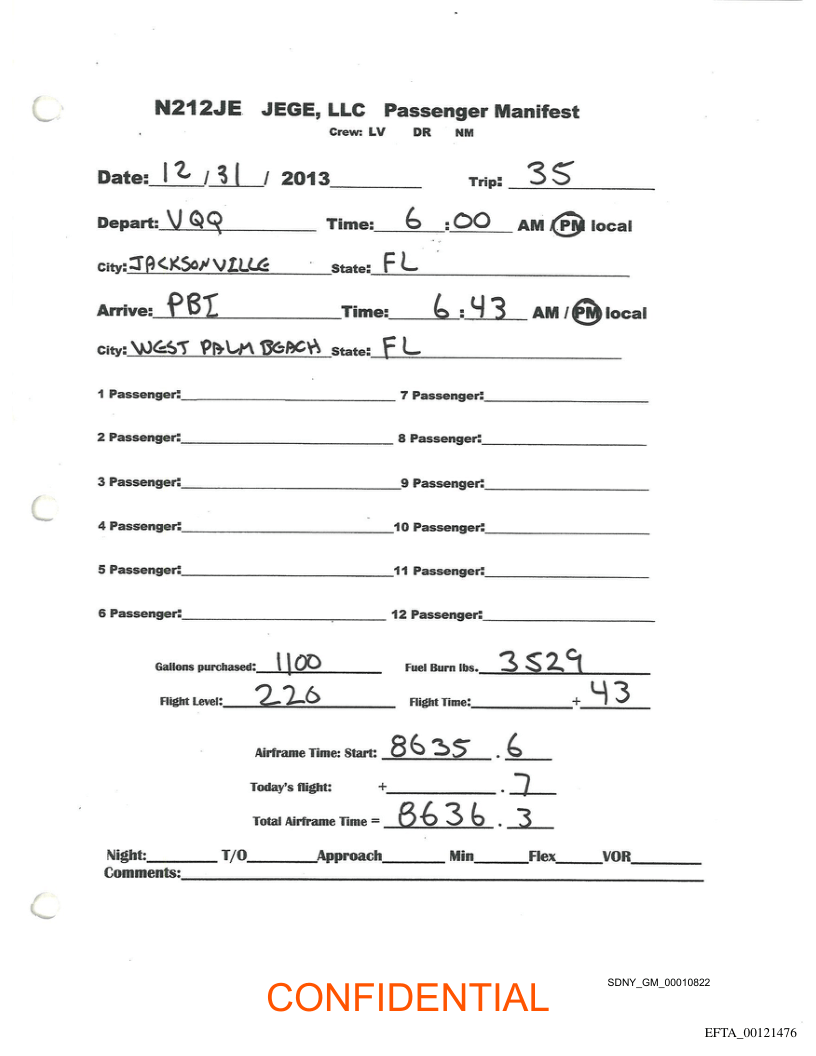 N212JE JEGE, LLC Passenger Manifest
Crew: LV DR NM
Date: 12 / 31 / 2013 Trip: 35
Depart: VQQ Time: 6 :00 AM / PM local
City: JACKSONVILLE State: FL
Arrive: PBI Time: 6 : 43 AM / PM local
City: WEST PALM BEACH State: FL
1 Passenger: 7 Passenger:
2 Passenger: 8 Passenger:
3 Passenger: 9 Passenger:
4 Passenger: 10 Passenger:
5 Passenger: 11 Passenger:
6 Passenger: 12 Passenger:
Gallons purchased: 1100 Fuel Burn lbs. 3529
Flight Level: 220 Flight Time: + 43
Airframe Time: Start: 8635 . 6
Today's flight: + . 7
Total Airframe Time = 8636 . 3
Night: T/O Approach Min Flex VOR
Comments:
SDNY_GM_00010822
CONFIDENTIAL
EFTA_00121476